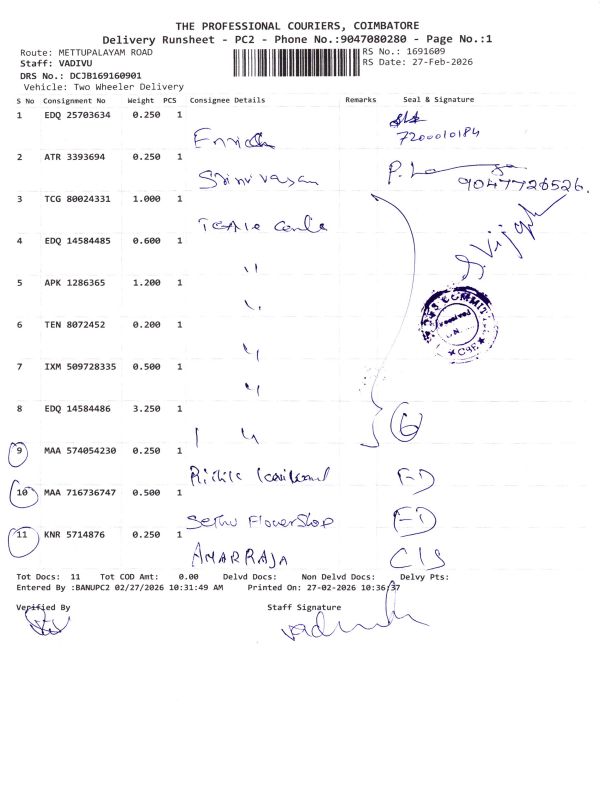 THE PROFESSIONAL COURIERS, COIMBATORE
Delivery Runsheet - PC2 - Phone No.:9047080280 - Page No.:1
Route: METTUPALAYAM ROAD RS No.: 1691609
Staff: VADIVU RS Date: 27-Feb-2026
DRS No.: DCJB169160901
Vehicle: Two Wheeler Delivery
S No Consignment No Weight PCS Consignee Details Remarks Seal & Signature
1 EDQ 25703634 0.250 1
7200010184
2 ATR 3393694 0.250 1
Srinivasan 9047726526.
3 TCG 80024331 1.000 1
4 EDQ 14584485 0.600 1
"
5 APK 1286365 1.200 1
"
6 TEN 8072452 0.200 1
"
7 IXM 509728335 0.500 1
"
8 EDQ 14584486 3.250 1
" 6
9 MAA 574054230 0.250 1
10 MAA 716736747 0.500 1
Sethu Flower Shop
11 KNR 5714876 0.250 1
AMARRAJA
Tot Docs: 11 Tot COD Amt: 0.00 Delvd Docs: Non Delvd Docs: Delvy Pts:
Entered By :BANUPC2 02/27/2026 10:31:49 AM Printed On: 27-02-2026 10:36:37
Verified By Staff Signature